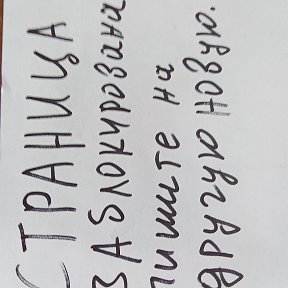 СТРАНИЦА
ЗАБлокирована
пишите на
другую новую.